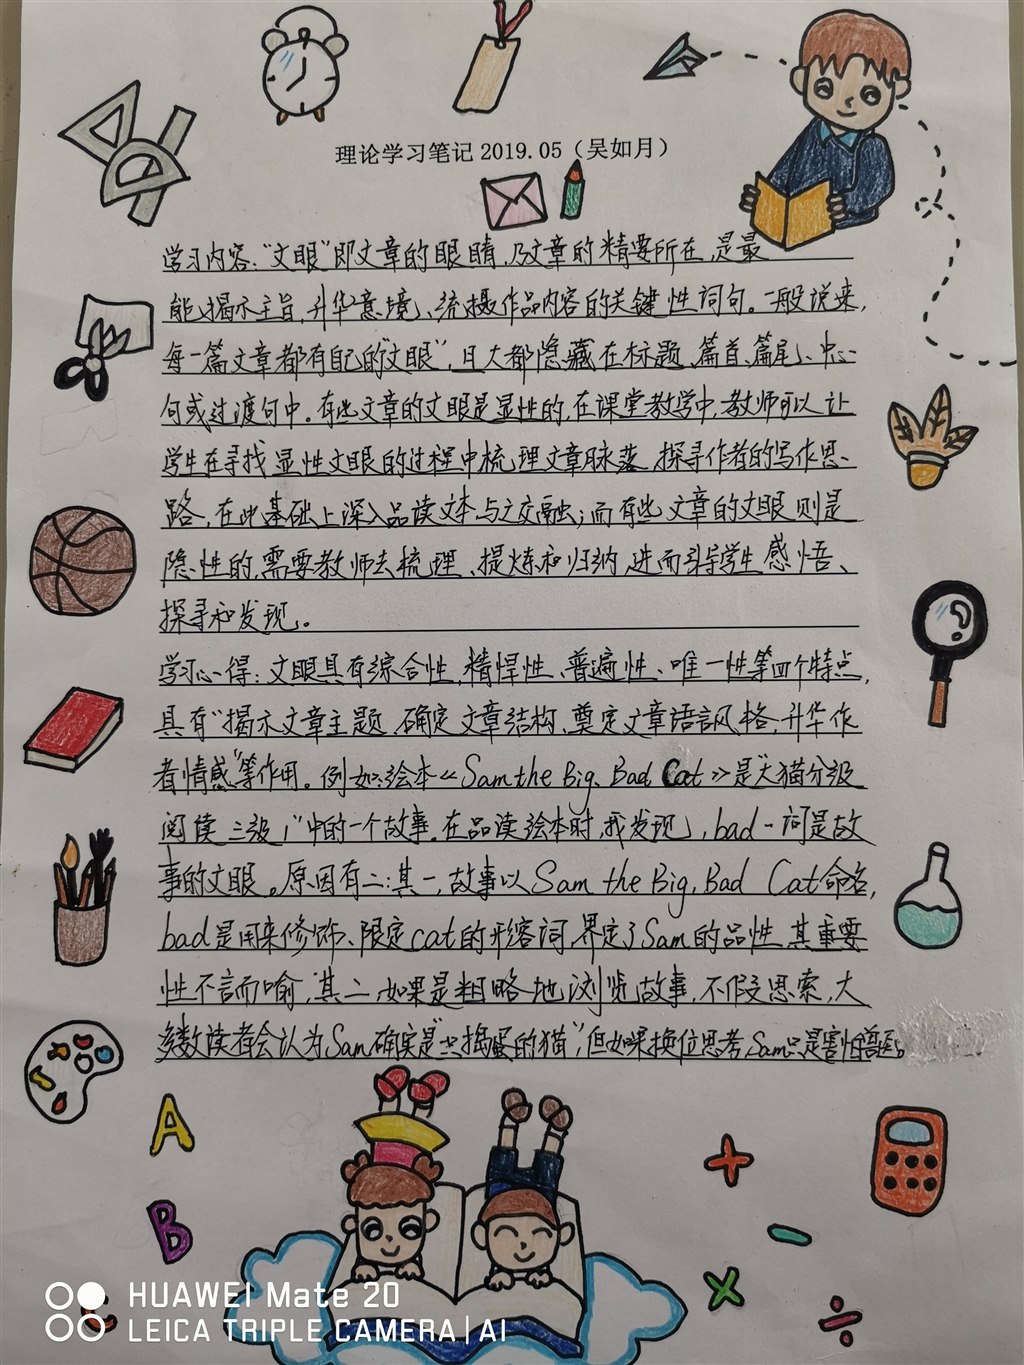 理论学习笔记 2019.05（吴如月）
学习内容："文眼"即文章的眼睛，乃文章的精要所在，是最
能揭示主旨、升华意境、统摄作品内容的关键性词句。一般说来，
每一篇文章都有自己的"文眼"，且大都隐藏在标题、篇首、篇尾、中心
句或过渡句中。有些文章的文眼是显性的，在课堂教学中，教师可以让
学生在寻找显性文眼的过程中梳理文章脉落，探寻作者的写作思
路，在此基础上深入品读文本与之交融；而有些文章的文眼则是
隐性的，需要教师去梳理、提炼和归纳，进而引导学生感悟、
探寻和发现。
学习心得：文眼具有综合性、精悍性、普遍性、唯一性等四个特点，
具有"揭示文章主题、确定文章结构、奠定文章语言风格、升华作
者情感"等作用。例如：绘本《Sam the Big, Bad Cat》是"大猫分级
阅读三级1"中的一个故事。在品读绘本时，我发现，bad一词是故
事的文眼。原因有二：其一，故事以Sam the Big, Bad Cat命名，
bad是用来修饰、限定cat的形容词，界定了Sam的品性，其重要
性不言而喻，其二，如果是粗略地浏览故事，不假思索，大
多数读者会认为Sam确实是"只捣蛋的猫"，但如果换位思考，Sam只是害怕兽医。
A
B
HUAWEI Mate 20
LEICA TRIPLE CAMERA | AI